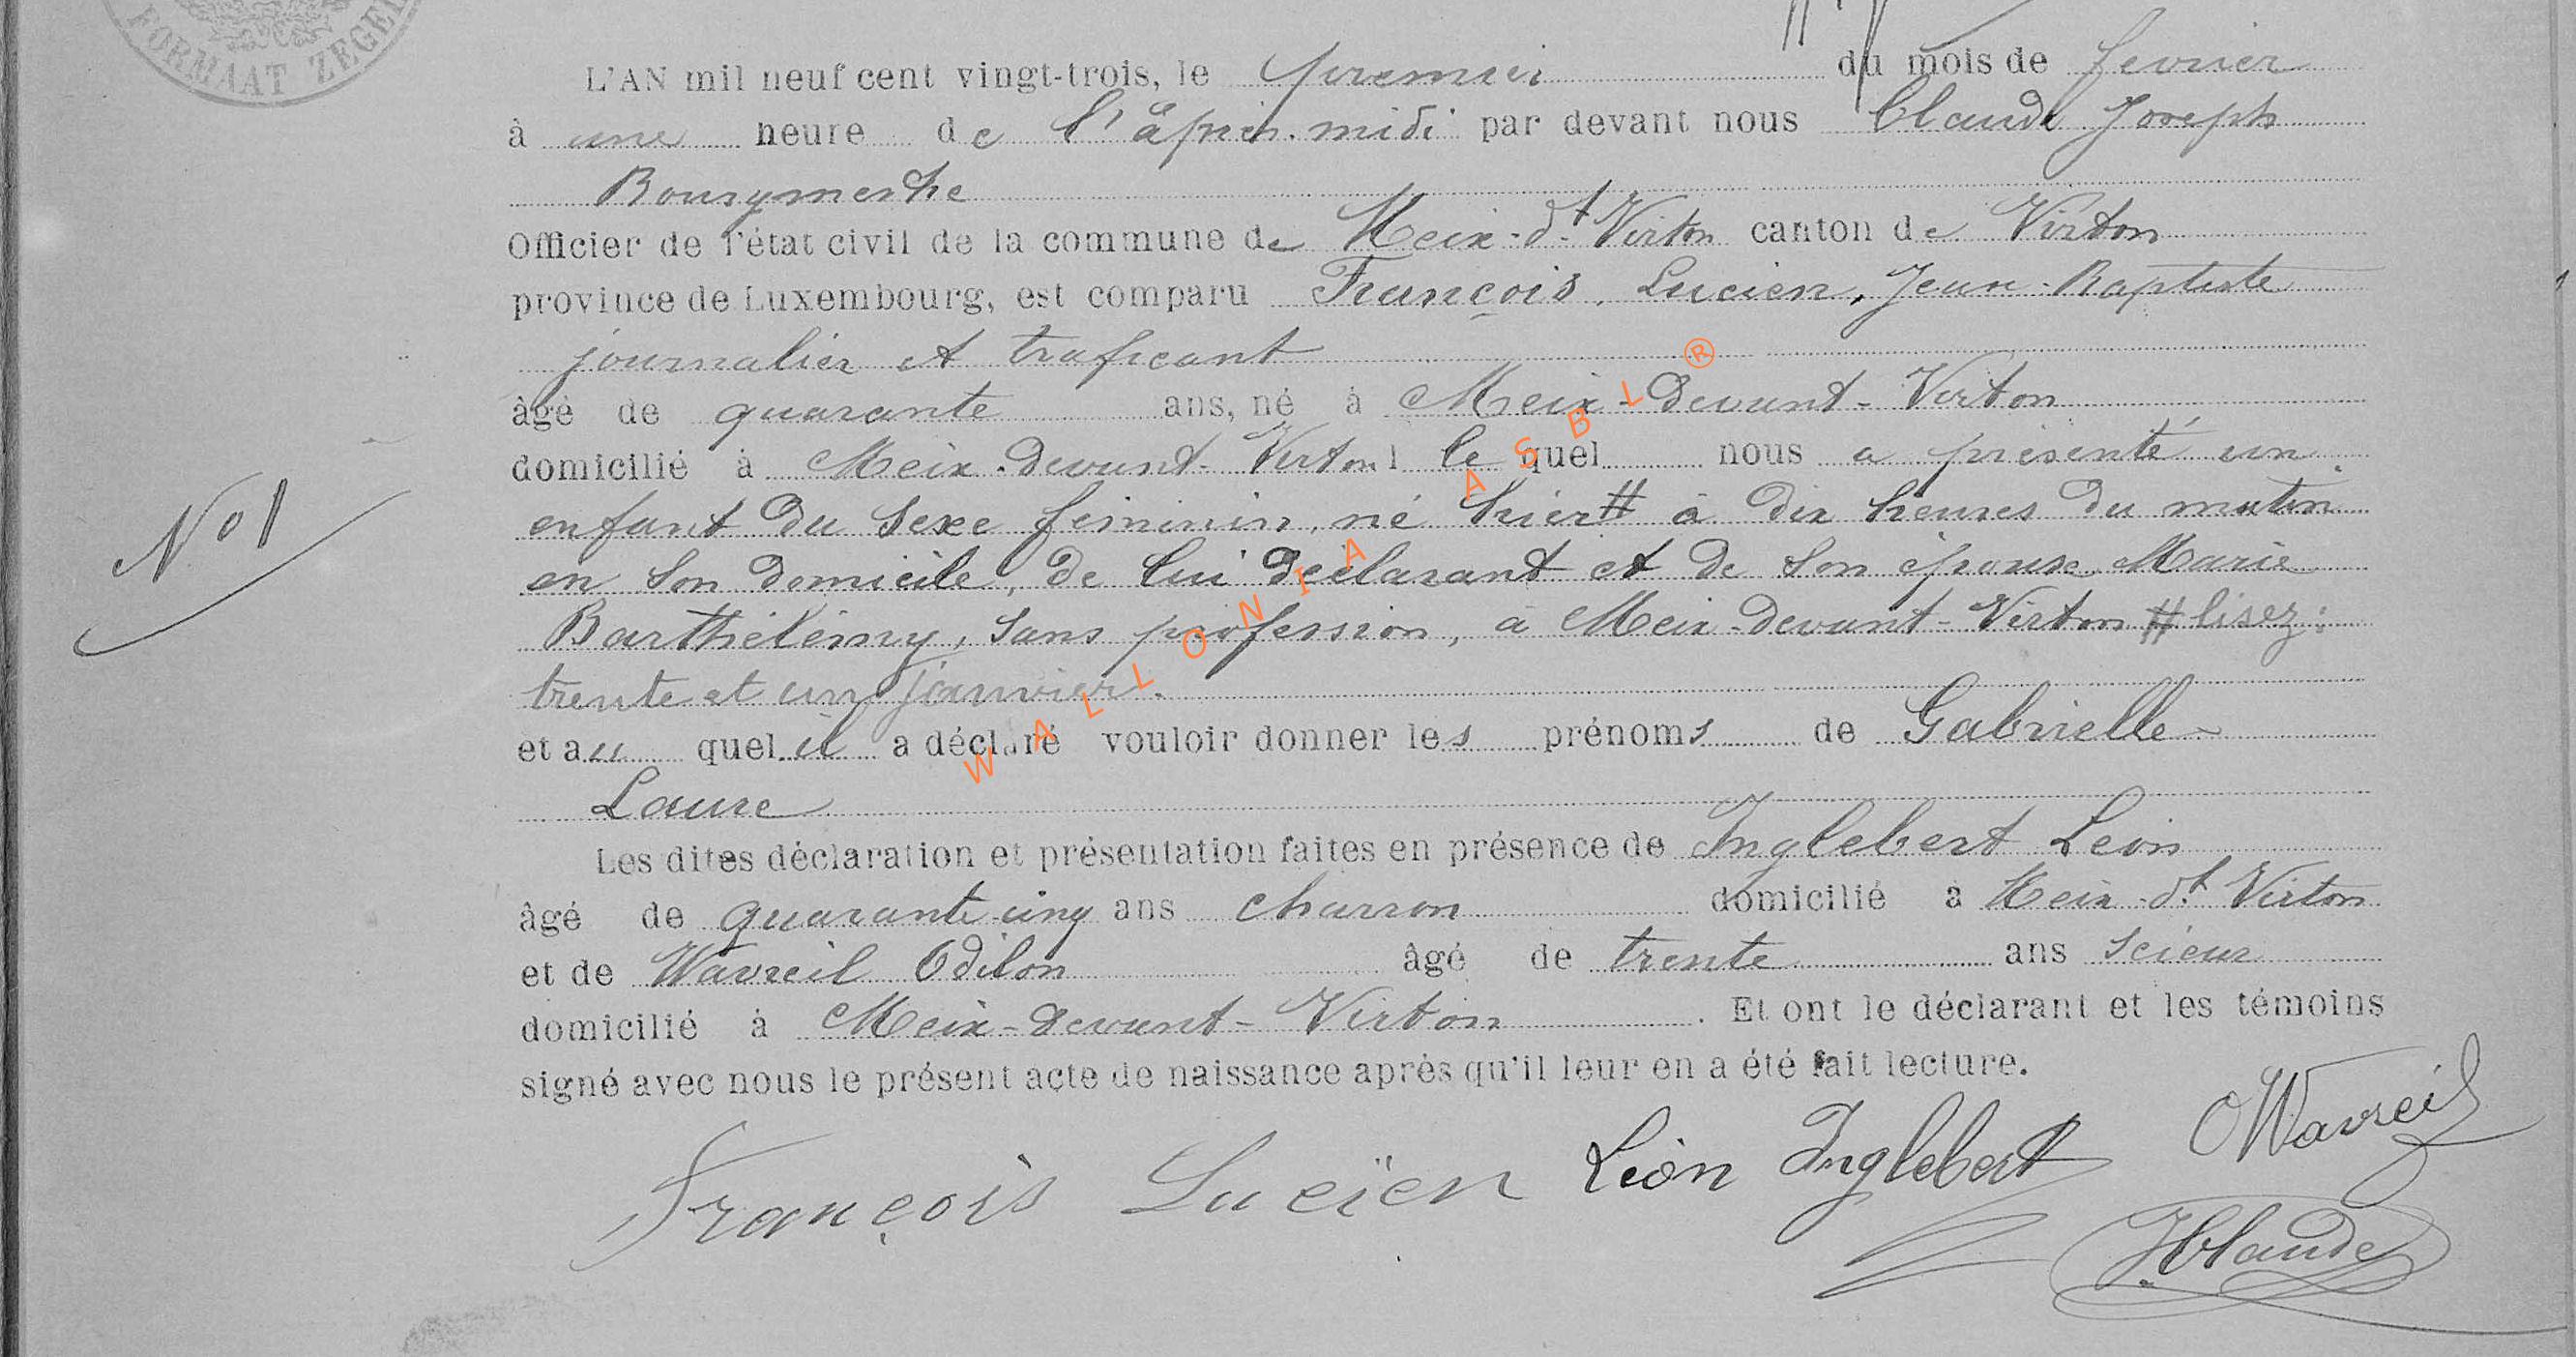 FORMAAT ZEGEL
L'AN mil neuf cent vingt-trois, le premier du mois de février
à une heure de l'après-midi par devant nous Claude Joseph
Bourgmestre
Officier de l'état civil de la commune de Meix-dt Virton canton de Virton
province de Luxembourg, est comparu François, Lucien, Jean-Baptiste
journalier et traficant
âgé de quarante ans, né à Meix-devant-Virton
domicilié à Meix-devant-Virton lequel nous a présenté un
N° 1
enfant du sexe féminin, né hier # à dix heures du matin
en son domicile, de lui déclarant et de son épouse Marie
Barthélémy, sans profession, à Meix-devant-Virton # lisez:
trente et un janvier.
et au quel il a déclaré vouloir donner les prénoms de Gabrielle-
Laure
Les dites déclaration et présentation faites en présence de Inglebert Léon
âgé de quarante-cinq ans charron domicilié à Meix-dt Virton
et de Wavreil Odilon âgé de trente ans scieur
domicilié à Meix-devant-Virton. Et ont le déclarant et les témoins
signé avec nous le présent acte de naissance après qu'il leur en a été fait lecture.
François Lucïen Léon Inglebert OWavreil
JClaude
WALLONIA ASBL ®